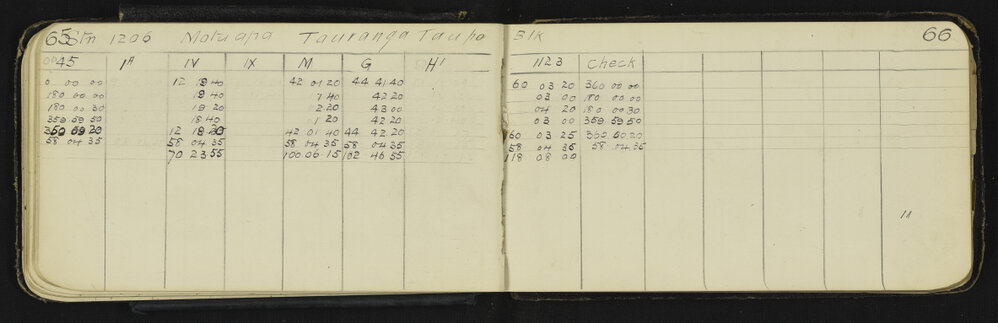 65 Stn 1206 Motuapa Tauranga Taupo Blk 66
45 1A IV IX M G H' 1123 Check
0 00 00 12 19 40 42 01 20 44 41 40 60 03 20 360 00 00
180 00 00 19 40 1 40 42 20 03 00 180 00 00
180 00 30 19 20 2 20 43 00 04 20 180 00 30
359 59 50 18 40 1 20 42 20 03 00 359 59 50
12 19 20 42 01 40 44 42 20 60 03 25 360 00 20
58 04 35 58 04 35 58 04 35 58 04 35 58 04 35 58 04 35
70 23 55 100 06 15 102 46 55 118 08 00